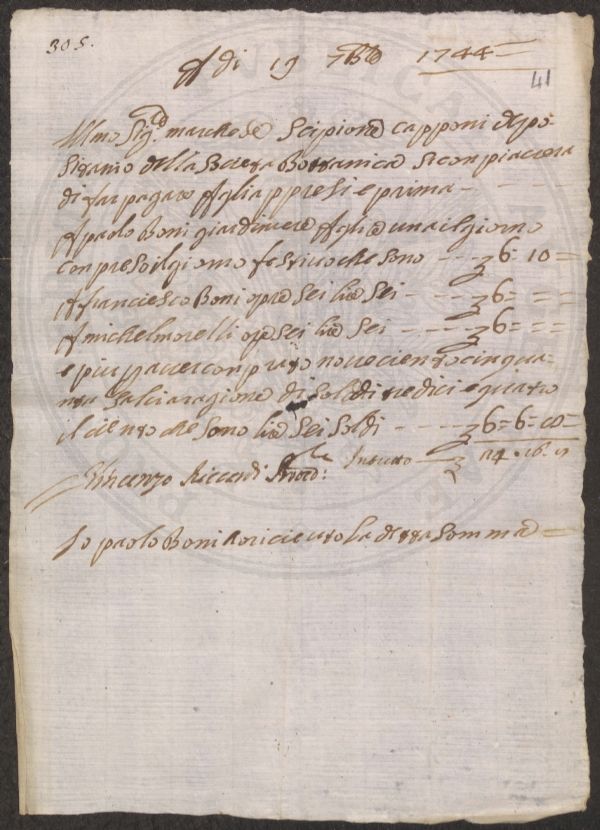 305.
A di 19 7bre 1744
41
Illmo Sigre marchese Scipione Capponi depo-
sitario della Societa Bottanica Si conpiacera
di far pagare Agliappresi e prima - - -
A paolo Boni giardiniere Aglie una il giorno
conpreso il giorno festivo che sono - - - £ 6 = 10 =
A franciesco Boni opre Sei lire Sei - - - £ 6 = = =
A michel morelli opre Sei lire Sei - - - £ 6 = = =
e piu paver conpruto novecientocinqua-
nta Salci a ragione di Soldi tredici e quatro
il ciento che Sono lire Sei Soldi - - - £ 6 = 6 = 8 =
Vincenzo Riccardi Prove: In tutto £ 24 · 16 ·
Io paolo Boni o ricieuto la detta Somma =